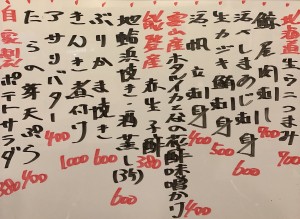 北海道生うにつまみ
鯨尾肉刺し
活〆しまあじ刺身 600
生カツオ刺身 500
活帆立刺身 400
富山産ホタルイカと菜の花酢味噌がけ 400
能登産赤生子酢 380
地蛤浜焼き・酒蒸し(3ヶ) 600
ぶりかま焼き 600
きんき煮付け 1000
アサリバター 400
たらの芽天ぷら 400
自家製ポテトサラダ 380